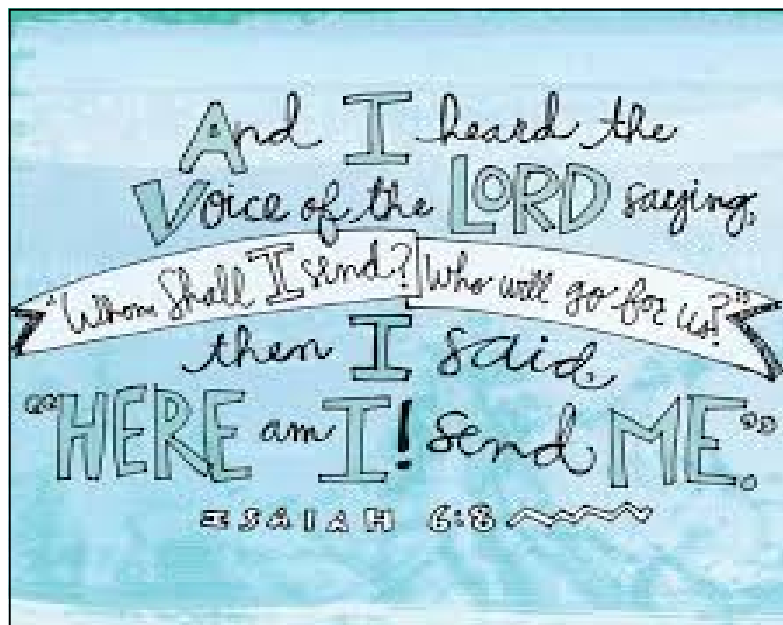 And I heard the
Voice of the LORD saying,
"Whom Shall I send? Who will go for us?"
then I said,
"HERE am I! send ME."
ISAIAH 6:8